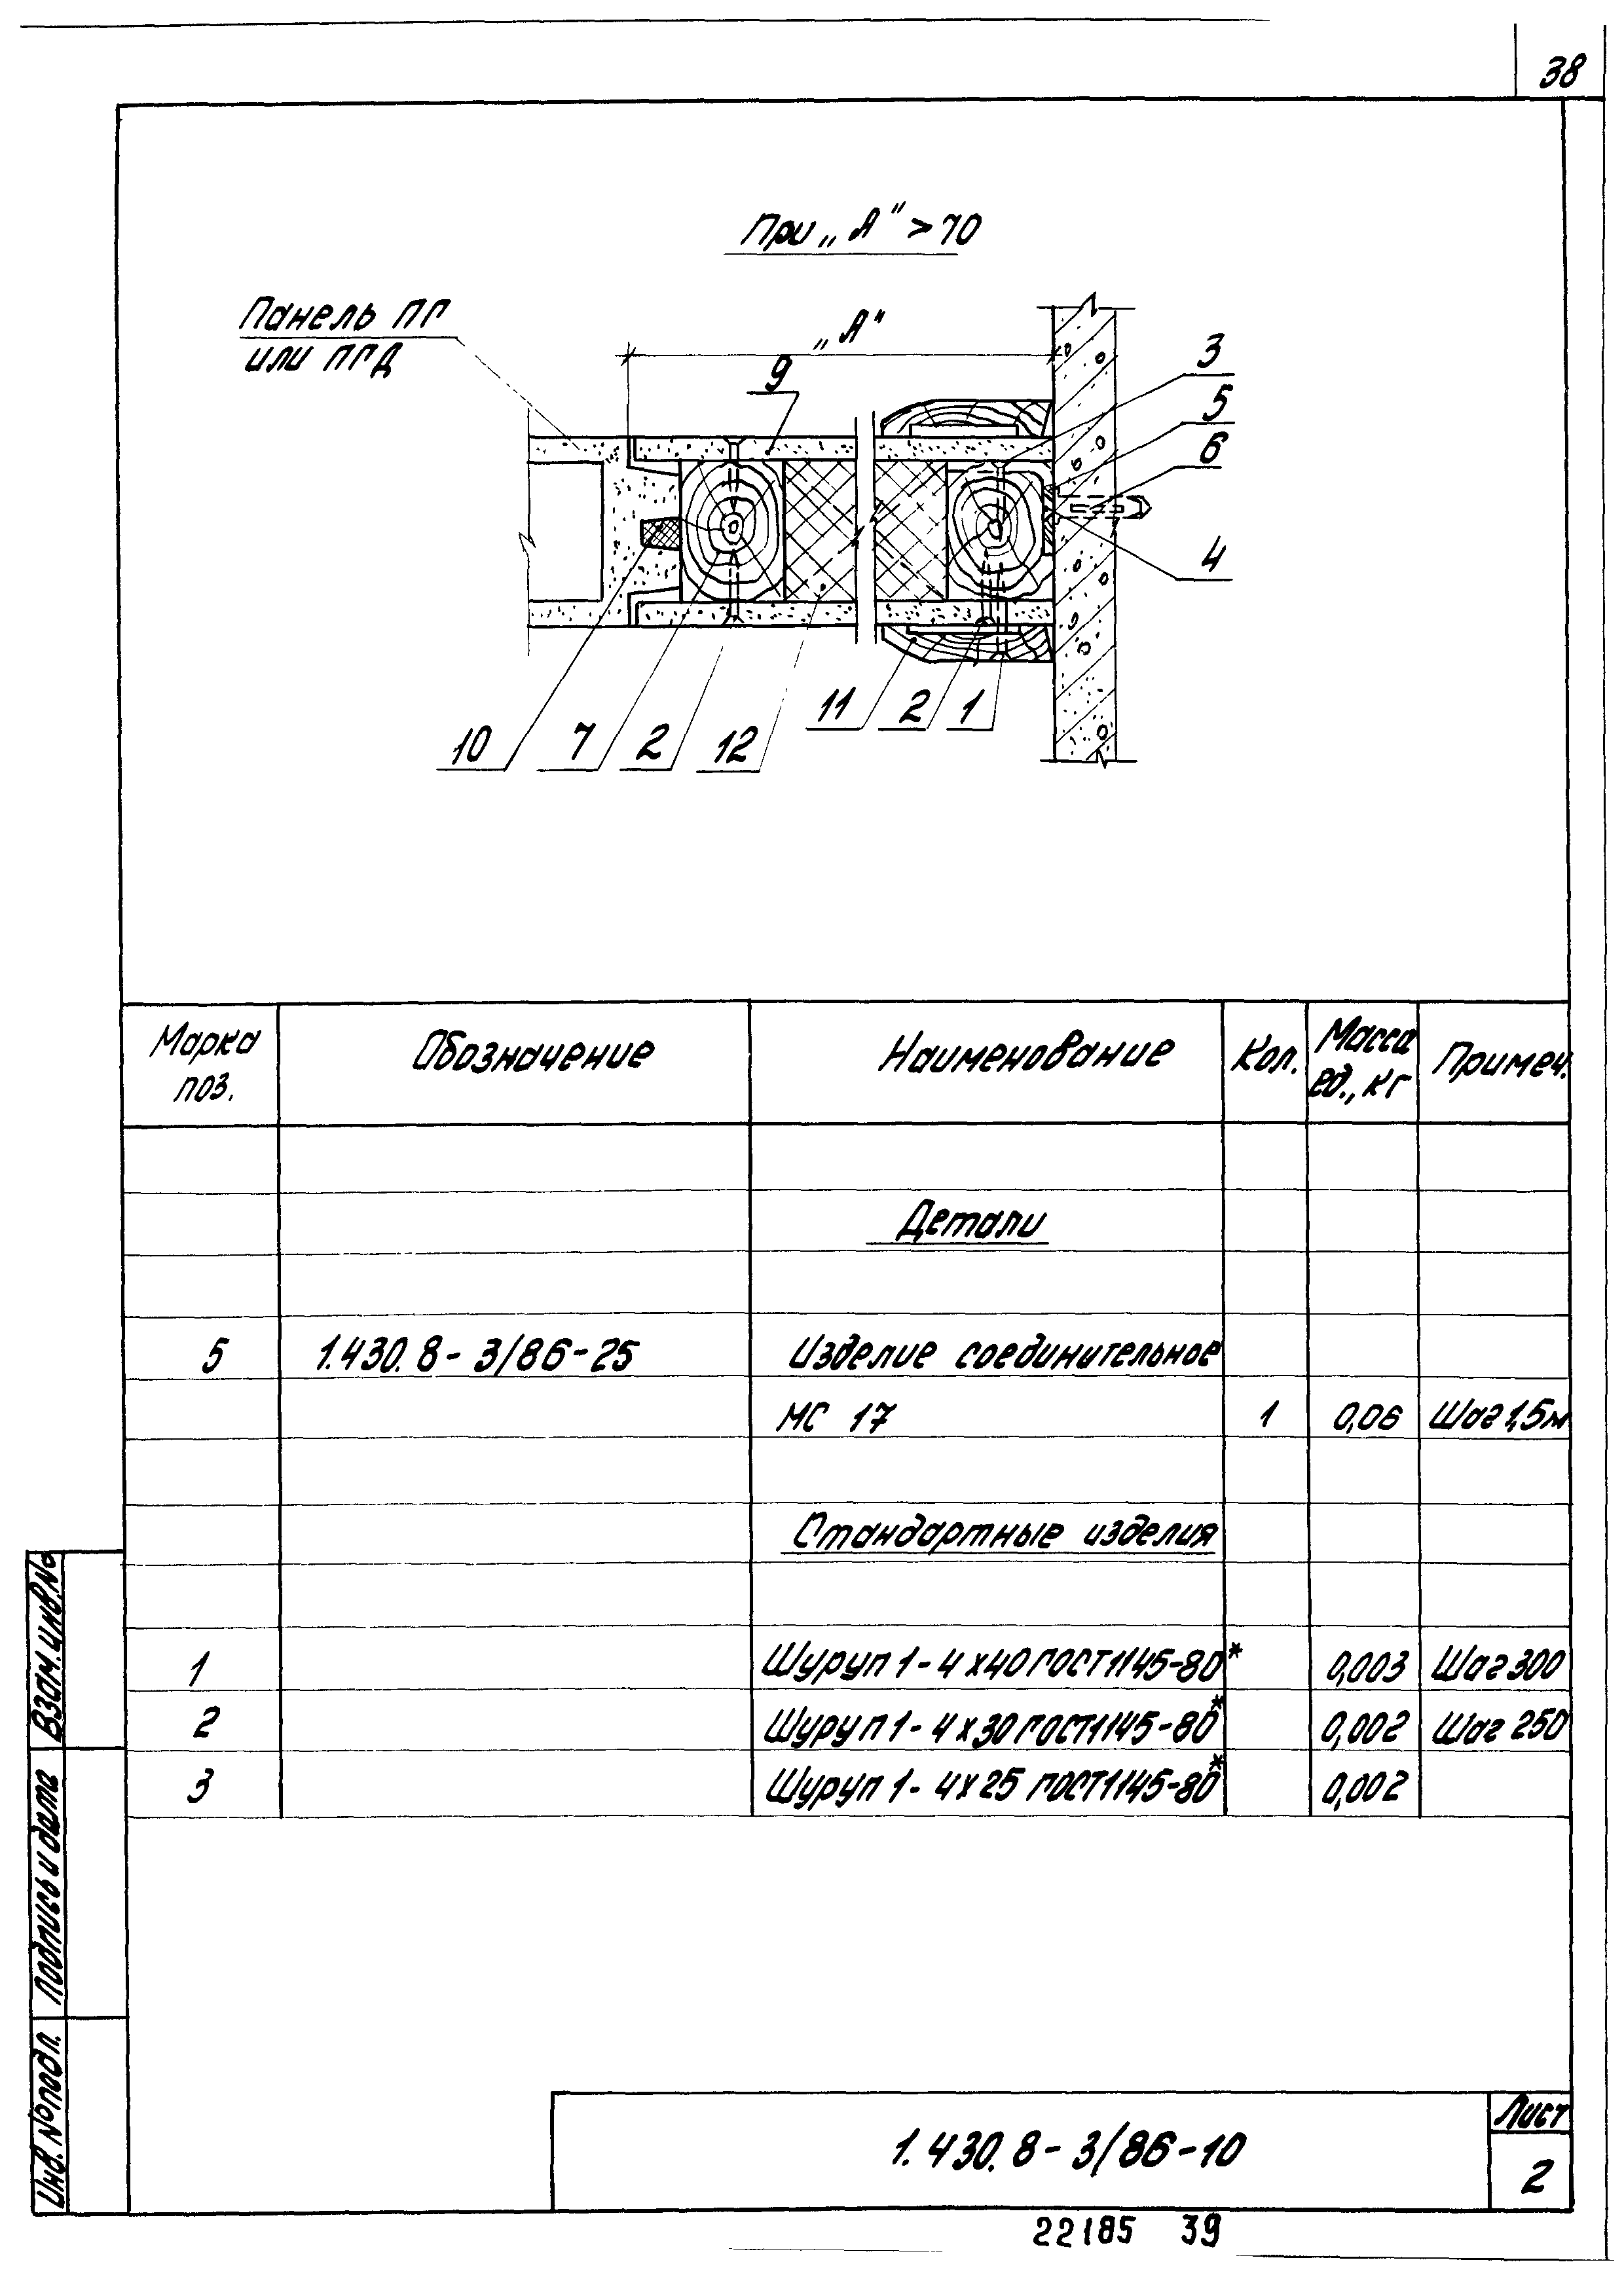 38
При „А“ > 70
Панель ПГ
или ПГД
„А“
9
3
5
6
4
10
7
2
12
11
2
1
Марка поз. Обозначение Наименование Кол. Масса ед., кг Примеч.
Детали
5 1.430.8-3/86-25 Изделие соединительное
МС 17 1 0,06 Шаг 1,5м
Стандартные изделия
1 Шуруп 1-4х40 ГОСТ 1145-80* 0,003 Шаг 300
2 Шуруп 1-4х30 ГОСТ 1145-80* 0,002 Шаг 250
3 Шуруп 1-4х25 ГОСТ 1145-80* 0,002
Взам. инв. №
Подпись и дата
Инв. № подл.
1.430.8-3/86-10
Лист
2
22185 39